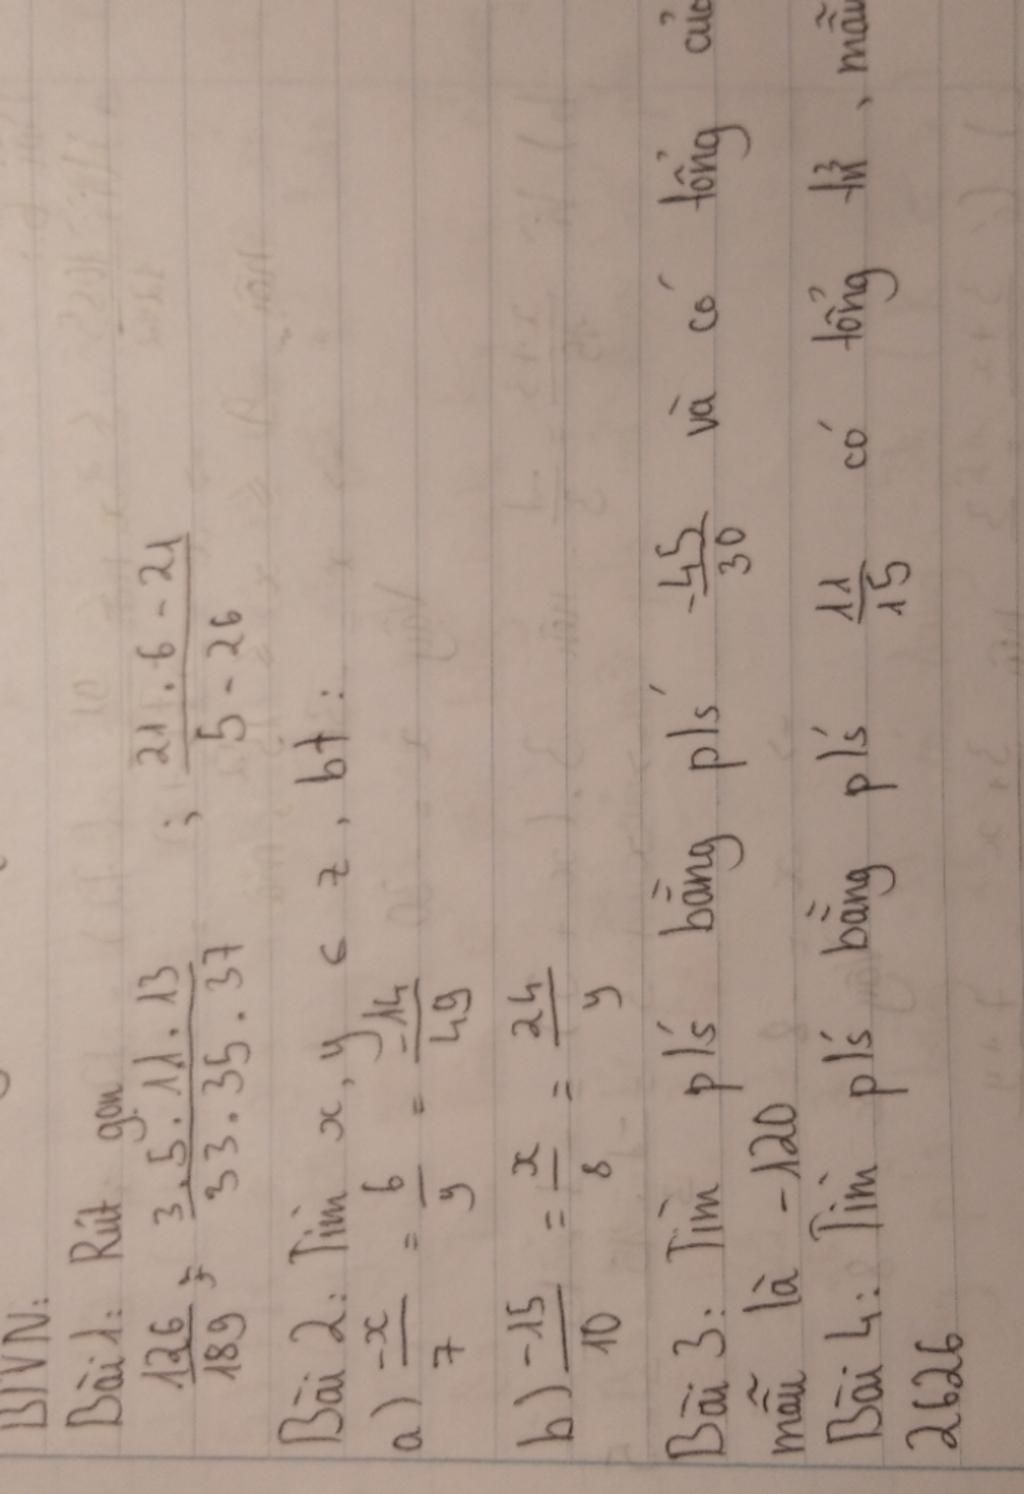 BTVN:
Bài 1: Rút gọn
126/189 ; 3.5.11.13/33.35.37 ; 21.6-21/5-26
Bài 2: Tìm x, y ∈ Z, bt:
a) -x/7 = 6/y = -14/49
b) -15/10 = x/8 = 24/y
Bài 3: Tìm pls bằng pls -45/30 và có tổng của
mẫu là -120
Bài 4: Tìm pls bằng pls 11/15 có tổng tử, mẫu
2626